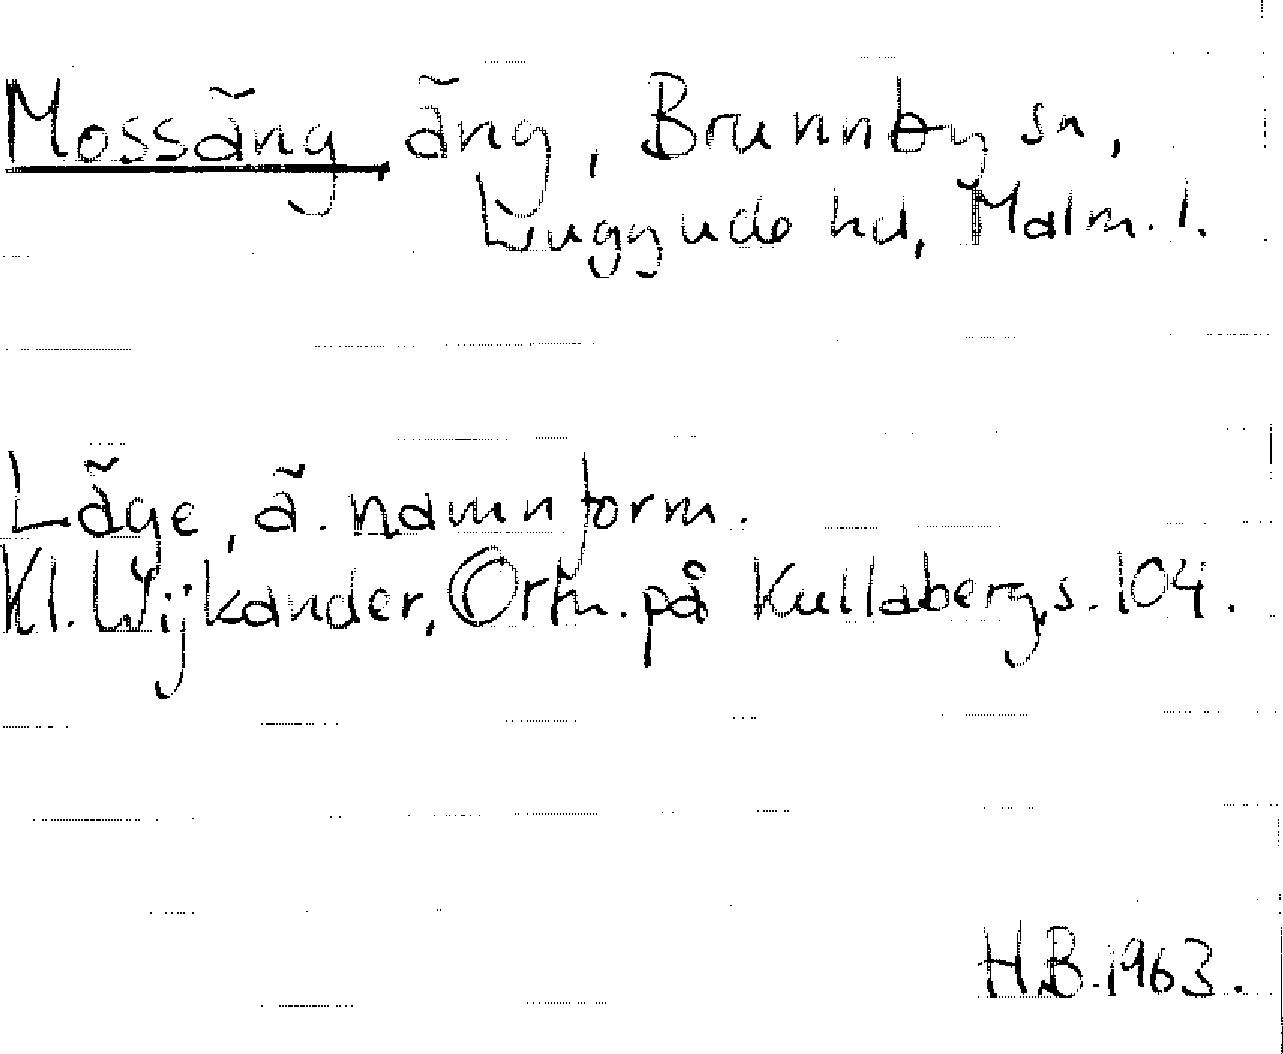 Mossäng äng, Brunnby sn,
Luggude hd, Malm. l.
Läge, ä. namnform.
Kl. Wijkander, Ortn. på Kullaberg, s. 104.
H.B. 1963.